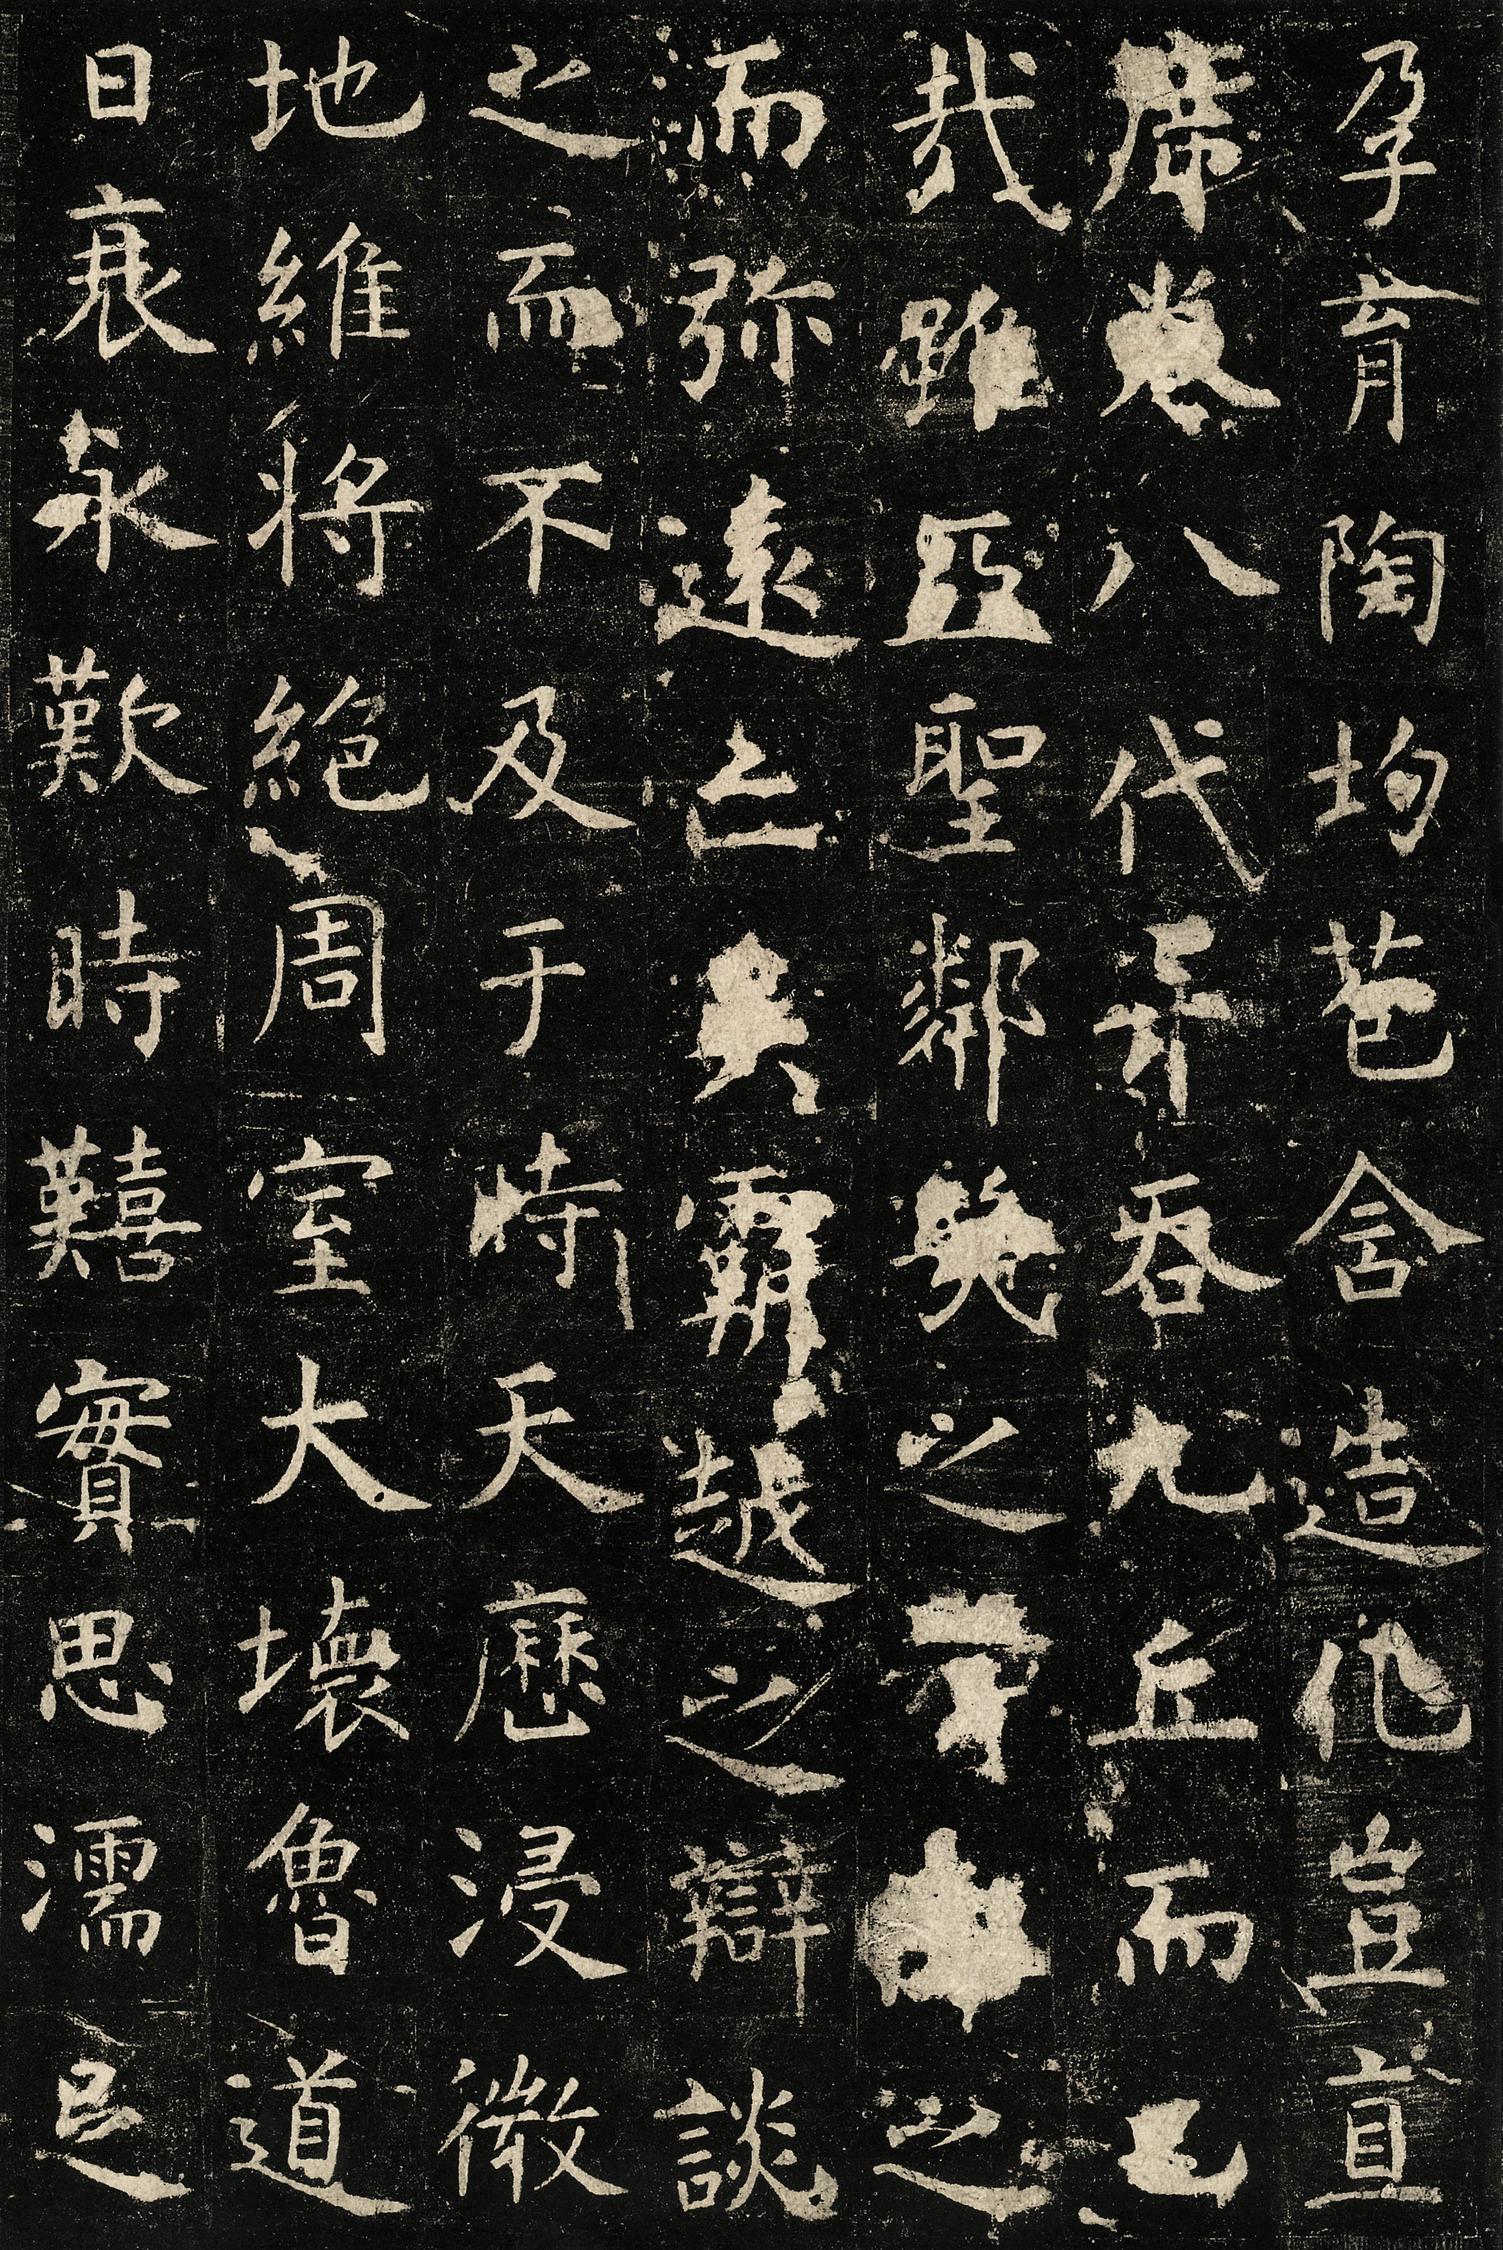 孕育陶均苞含造化豈直
席卷八代并吞九丘而已
哉雖亞聖鄰幾之智仰之
而弥遠亡吳霸越之辯談
之而不及于時天歷浸微
地維將絕周室大壞魯道
日衰永歎時囏實思濡足